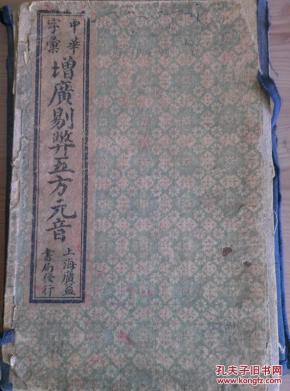 中華
字彙
增廣剔弊五方元音
上海廣益
書局發行
孔夫子旧书网